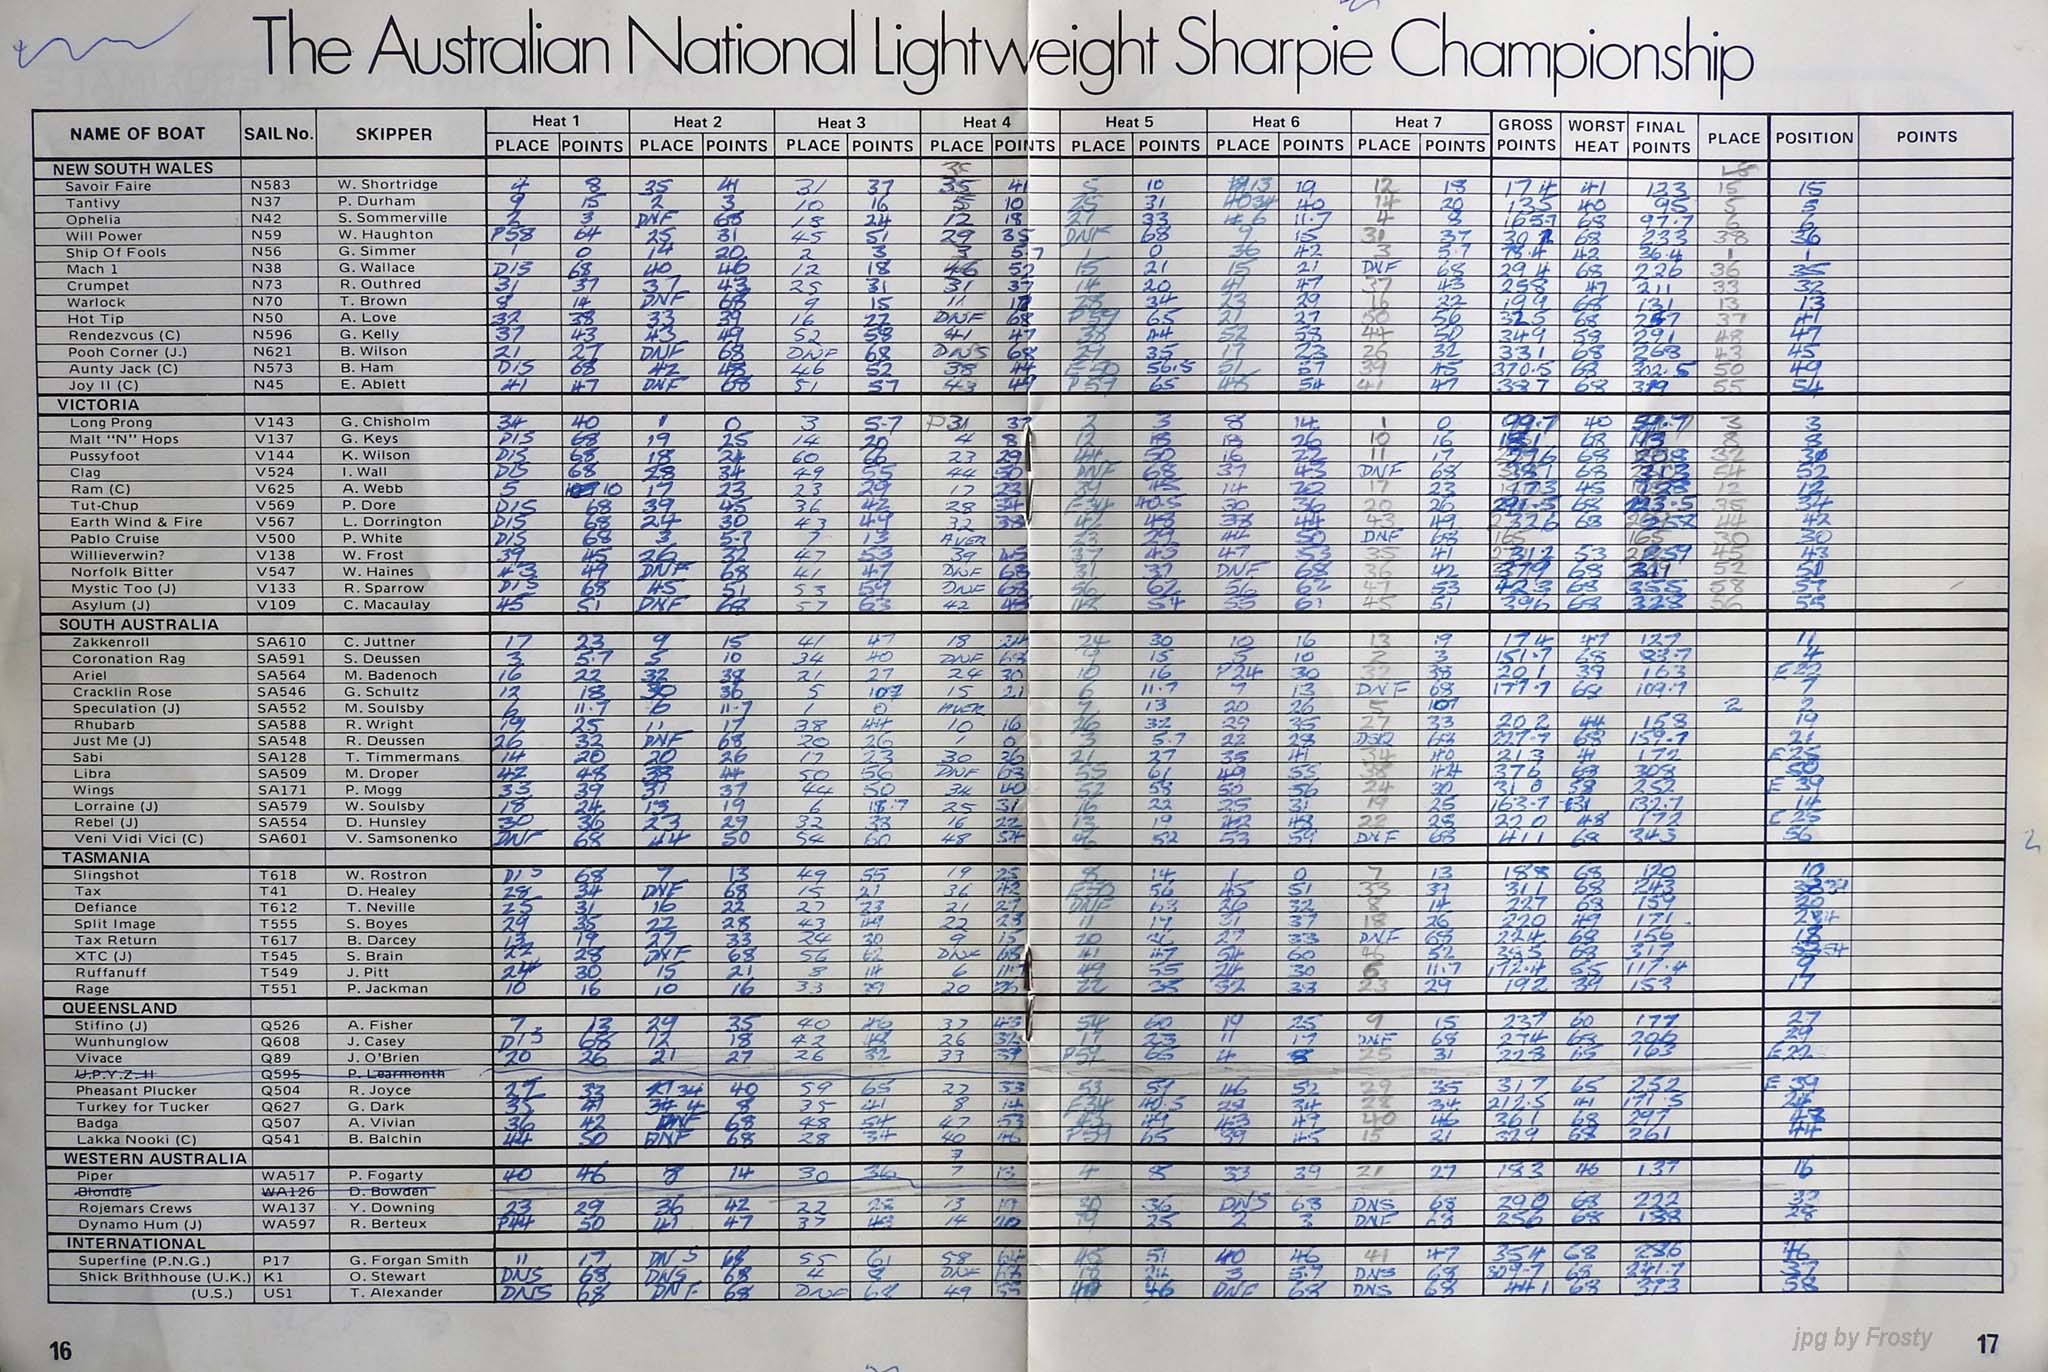 The Australian National Lightweight Sharpie Championship
NAME OF BOAT SAIL No. SKIPPER Heat 1 Heat 2 Heat 3 Heat 4 Heat 5 Heat 6 Heat 7 GROSS POINTS WORST HEAT FINAL POINTS PLACE POSITION POINTS
PLACE POINTS PLACE POINTS PLACE POINTS PLACE POINTS PLACE POINTS PLACE POINTS PLACE POINTS
NEW SOUTH WALES
Savoir Faire N583 W. Shortridge 4 8 35 41 31 37 35 41 5 10 13 19 12 18 174 41 123 15 15
Tantivy N37 P. Durham 9 15 2 3 10 16 5 10 25 31 34 40 14 20 135 40 95 5 5
Ophelia N42 S. Sommerville 2 3 DNF 68 18 24 12 18 27 33 6 11.7 4 8 68 97.7 6 6
Will Power N59 W. Haughton P58 64 25 31 45 51 29 35 DNF 68 9 15 31 37 68 233 38 36
Ship Of Fools N56 G. Simmer 1 0 14 20 2 3 3 5.7 1 0 36 42 3 5.7 78.4 42 36.4 1 1
Mach 1 N38 G. Wallace DIS 68 40 46 12 18 46 52 15 21 15 21 DNF 68 294 68 226 36 35
Crumpet N73 R. Outhred 31 37 37 43 25 31 31 37 14 20 41 47 37 43 258 47 211 33 32
Warlock N70 T. Brown 8 14 DNF 68 9 15 11 17 28 34 23 29 16 22 199 68 131 13 13
Hot Tip N50 A. Love 32 38 33 39 16 22 DNF 68 P59 65 21 27 50 56 325 68 37 41
Rendezvous (C) N596 G. Kelly 37 43 43 49 52 58 41 47 38 44 52 58 44 50 349 58 291 48 47
Pooh Corner (J.) N621 B. Wilson 21 27 DNF 68 DNF 68 DNS 68 35 17 23 26 32 331 68 268 43 45
Aunty Jack (C) N573 B. Ham DIS 68 42 48 46 52 38 44 56.5 51 57 39 45 370.5 68 302.5 50 49
Joy II (C) N45 E. Ablett 41 47 DNF 68 51 57 43 49 P59 65 48 54 41 47 387 68 319 55 54
VICTORIA
Long Prong V143 G. Chisholm 34 40 1 0 3 5.7 P31 37 2 3 8 14 1 0 99.7 40 59.7 3 3
Malt "N" Hops V137 G. Keys DIS 68 19 25 14 20 4 8 12 18 26 10 16 181 68 113 8 8
Pussyfoot V144 K. Wilson DIS 68 18 24 60 66 23 29 44 50 16 22 11 17 276 68 208 32
Clag V524 I. Wall DIS 68 28 34 49 55 44 50 DNF 68 39 45 DNF 68 68 54 52
Ram (C) V625 A. Webb 5 10 17 23 23 29 17 23 39 45 14 20 17 23 45 12 12
Tut-Chup V569 P. Dore DIS 68 39 45 36 42 28 34 40.5 30 36 20 26 291.5 68 223.5 35 34
Earth Wind & Fire V567 L. Dorrington DIS 68 24 30 43 49 32 38 42 48 38 44 43 49 326 68 258 44 42
Pablo Cruise V500 P. White DIS 68 3 5.7 7 13 AVER 23 29 44 50 DNF 68 165 165 30 30
Willieverwin? V138 W. Frost 39 45 26 32 47 53 39 45 37 43 47 53 35 41 312 53 259 45 43
Norfolk Bitter V547 W. Haines 43 49 DNF 68 41 47 DNF 68 31 37 DNF 68 36 42 379 68 52 51
Mystic Too (J) V133 R. Sparrow DIS 68 45 51 53 59 DNF 68 56 62 56 62 47 53 423 68 355 58 57
Asylum (J) V109 C. Macaulay 45 51 DNF 68 57 63 42 48 48 54 55 61 45 51 396 68 328 56 55
SOUTH AUSTRALIA
Zakkenroll SA610 C. Juttner 17 23 9 15 41 47 18 24 24 30 10 16 13 19 174 47 127 11
Coronation Rag SA591 S. Deussen 3 5.7 5 10 34 40 DNF 68 9 15 5 10 2 3 151.7 68 83.7 4
Ariel SA564 M. Badenoch 16 22 32 38 21 27 24 30 10 16 P24 30 32 38 201 38 163 E22
Cracklin Rose SA546 G. Schultz 12 18 30 36 5 10 15 21 6 11.7 7 13 DNF 68 177.7 68 109.7 7
Speculation (J) SA552 M. Soulsby 6 11.7 6 11.7 1 0 AVER 7 13 20 26 5 10 2 2
Rhubarb SA588 R. Wright 19 25 11 17 38 44 10 16 26 32 29 35 27 33 202 44 158 19
Just Me (J) SA548 R. Deussen 26 32 DNF 68 20 26 1 0 3 5.7 22 28 DSQ 68 227.7 68 159.7 21
Sabi SA128 T. Timmermans 14 20 20 26 17 23 30 36 21 27 35 41 34 40 213 41 172 E25
Libra SA509 M. Droper 42 48 38 44 50 56 DNF 68 55 61 49 55 38 44 376 68 308 50
Wings SA171 P. Mogg 33 39 31 37 44 50 34 40 52 58 50 56 24 30 310 58 252 E39
Lorraine (J) SA579 W. Soulsby 18 24 13 19 6 25 31 16 22 25 31 19 25 163.7 31 132.7 14
Rebel (J) SA554 D. Hunsley 30 36 23 29 32 38 16 22 13 19 42 48 22 28 220 48 172 E25
Veni Vidi Vici (C) SA601 V. Samsonenko DNF 68 44 50 54 60 48 54 46 52 53 59 DNF 68 411 68 343 56
TASMANIA
Slingshot T618 W. Rostron DIS 68 7 13 49 55 19 25 8 14 1 0 7 13 188 68 120 10
Tax T41 D. Healey 28 34 DNF 68 15 21 36 42 56 45 51 33 39 311 68 243
Defiance T612 T. Neville 25 31 16 22 27 33 21 27 DNF 68 26 32 8 14 227 68 159 20
Split Image T555 S. Boyes 29 35 22 28 43 49 22 28 11 17 31 37 18 26 220 49 171
Tax Return T617 B. Darcey 13 19 27 33 24 30 9 15 20 26 27 33 DNF 68 224 68 156 18
XTC (J) T545 S. Brain 22 28 DNF 68 56 62 DNF 68 41 47 54 60 46 52 385 68 317
Ruffanuff T549 J. Pitt 24 30 15 21 8 14 6 11.7 49 55 24 30 6 11.7 172.4 55 117.4 9
Rage T551 P. Jackman 10 16 10 16 33 39 20 26 22 28 32 38 23 29 192 39 153 17
QUEENSLAND
Stifino (J) Q526 A. Fisher 7 13 29 35 40 46 37 43 54 60 19 25 9 15 237 60 177 27
Wunhunglow Q608 J. Casey DIS 68 12 18 42 48 26 32 17 23 11 17 DNF 68 274 68 206 29
Vivace Q89 J. O'Brien 20 26 21 27 26 32 33 39 P59 65 4 8 25 31 228 65 163 E22
U.P.Y.Z. II Q595 P. Learmonth
Pheasant Plucker Q504 R. Joyce 27 33 34 40 59 65 27 33 53 59 46 52 29 35 317 65 252 E39
Turkey for Tucker Q627 G. Dark 35 41 4 8 35 41 8 14 40.5 28 34 28 34 212.5 41 171.5 24
Badga Q507 A. Vivian 36 42 DNF 68 48 54 47 53 43 49 43 49 40 46 361 68 297 48
Lakka Nooki (C) Q541 B. Balchin 44 50 DNF 68 28 34 40 46 P59 65 39 45 15 21 329 68 261 44
WESTERN AUSTRALIA
Piper WA517 P. Fogarty 40 46 8 14 30 36 7 13 4 8 33 39 21 27 183 46 137 16
Blondie WA126 D. Bowden
Rojemars Crews WA137 Y. Downing 23 29 36 42 22 28 13 19 30 36 DNS 68 DNS 68 290 68 222 33
Dynamo Hum (J) WA597 R. Berteux P44 50 41 47 37 43 14 20 19 25 2 3 DNF 68 256 68 188 28
INTERNATIONAL
Superfine (P.N.G.) P17 G. Forgan Smith 11 17 DNS 68 55 61 58 64 45 51 40 46 41 47 354 68 286 46
Shick Brithhouse (U.K.) K1 O. Stewart DNS 68 DNS 68 4 8 DNF 68 18 24 3 5.7 DNS 68 309.7 68 241.7 37
(U.S.) US1 T. Alexander DNS 68 DNF 68 DNF 68 49 55 40 46 DNF 68 DNS 68 441 68 373 58
16
jpg by Frosty
17